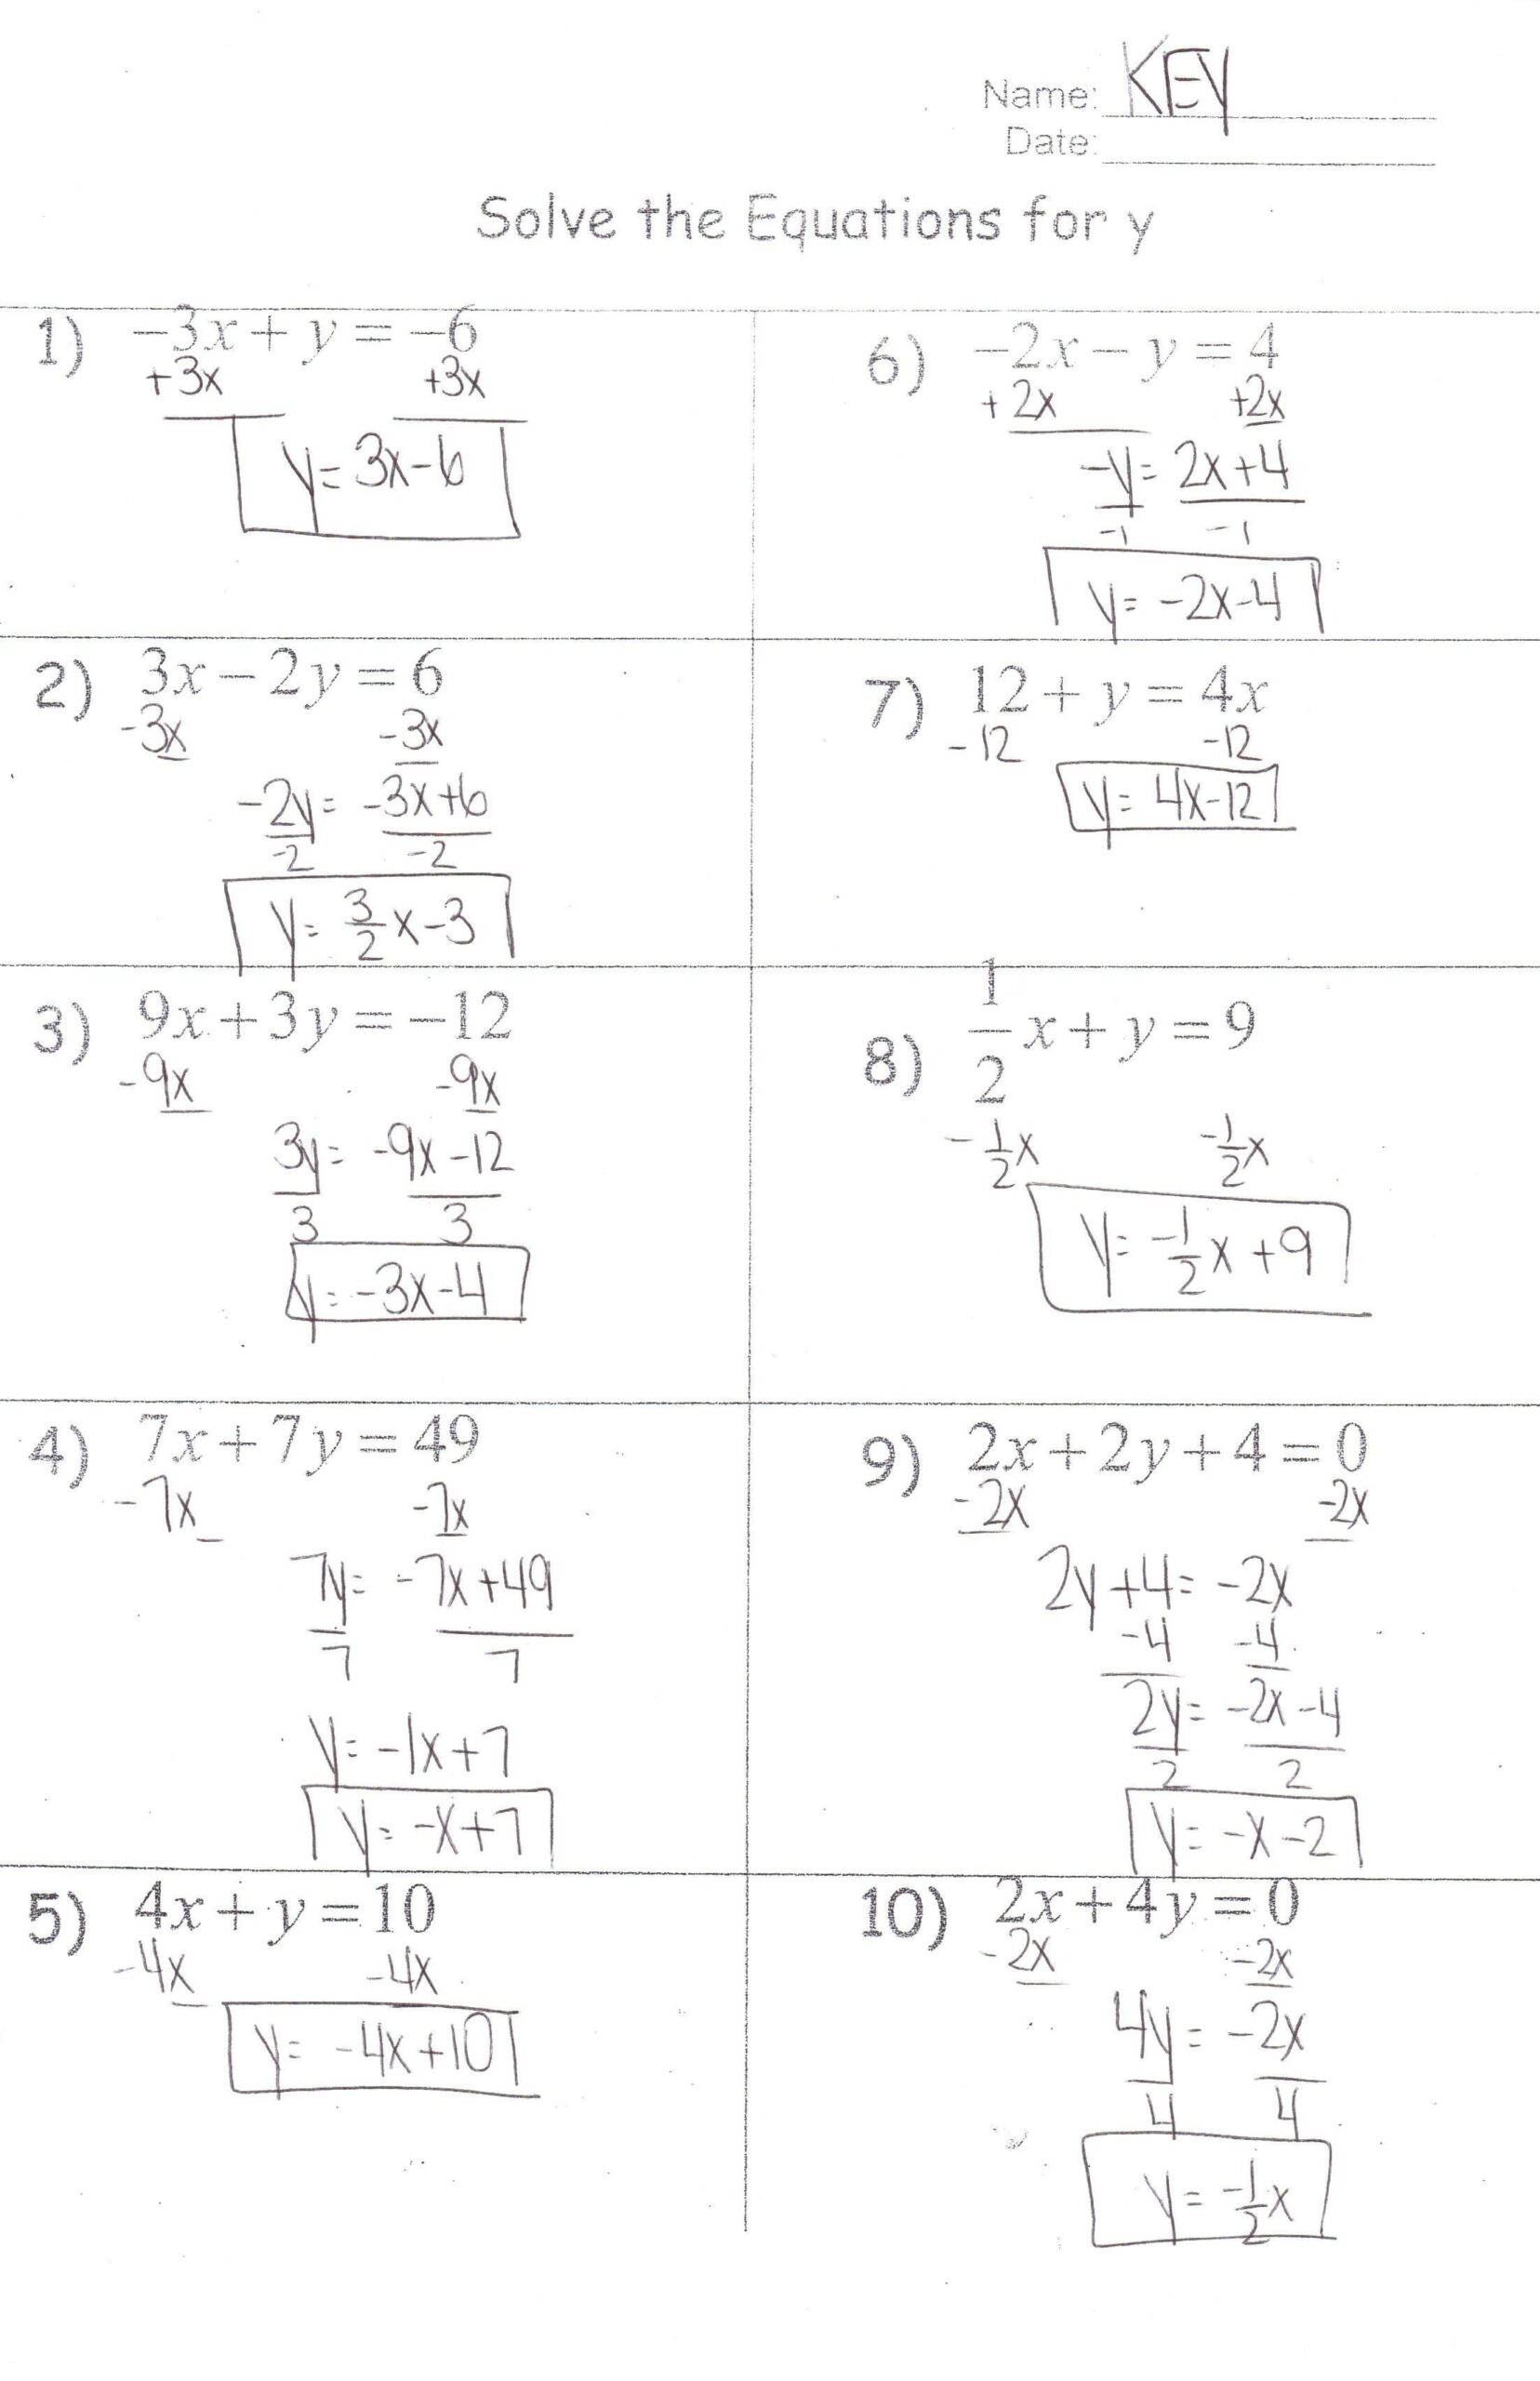 Name: KEY
Date:
Solve the Equations for y
1) −3x + y = −6
+3x +3x
y = 3x − 6
2) 3x − 2y = 6
-3x -3x
-2y = -3x + 6
-2 -2
y = 3/2 x − 3
3) 9x + 3y = −12
-9x -9x
3y = -9x − 12
3 3
y = -3x − 4
4) 7x + 7y = 49
-7x -7x
7y = -7x + 49
7 7
y = -1x + 7
y = -x + 7
5) 4x + y = 10
-4x -4x
y = -4x + 10
6) −2x − y = 4
+2x +2x
-y = 2x + 4
-1 -1
y = -2x − 4
7) 12 + y = 4x
-12 -12
y = 4x − 12
8) 1/2 x + y = 9
-1/2 x -1/2 x
y = -1/2 x + 9
9) 2x + 2y + 4 = 0
-2x -2x
2y + 4 = -2x
-4 -4
2y = -2x − 4
2 2
y = -x − 2
10) 2x + 4y = 0
-2x -2x
4y = -2x
4 4
y = -1/2 x